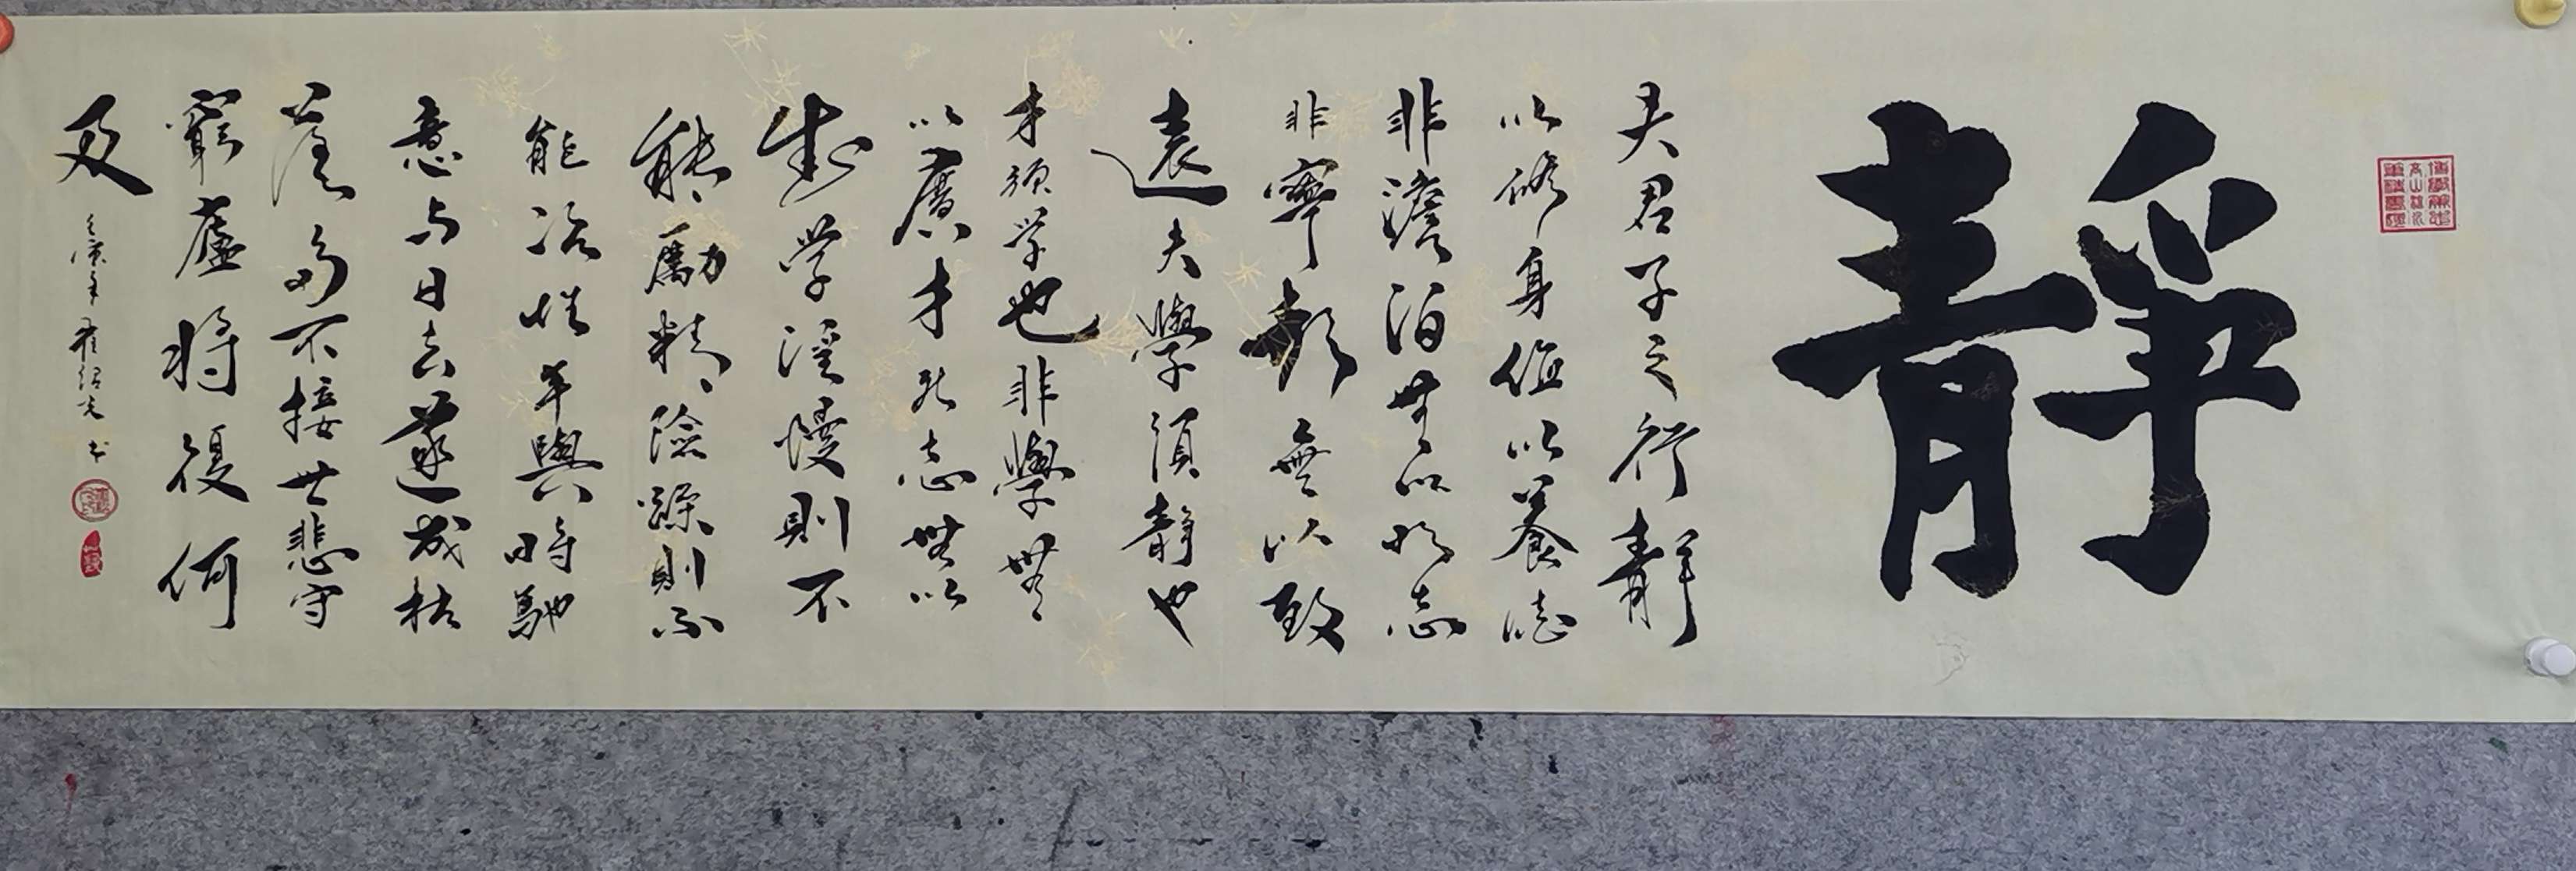 靜
夫君子之行靜
以修身儉以養德
非澹泊無以明志
非寧靜無以致
遠夫學須靜也
才須学也非學無
以廣才非志無以
成学淫慢則不
能勵精險躁則不
能冶性年與時馳
意与日去遂成枯
落多不接世悲守
窮廬將復何
及